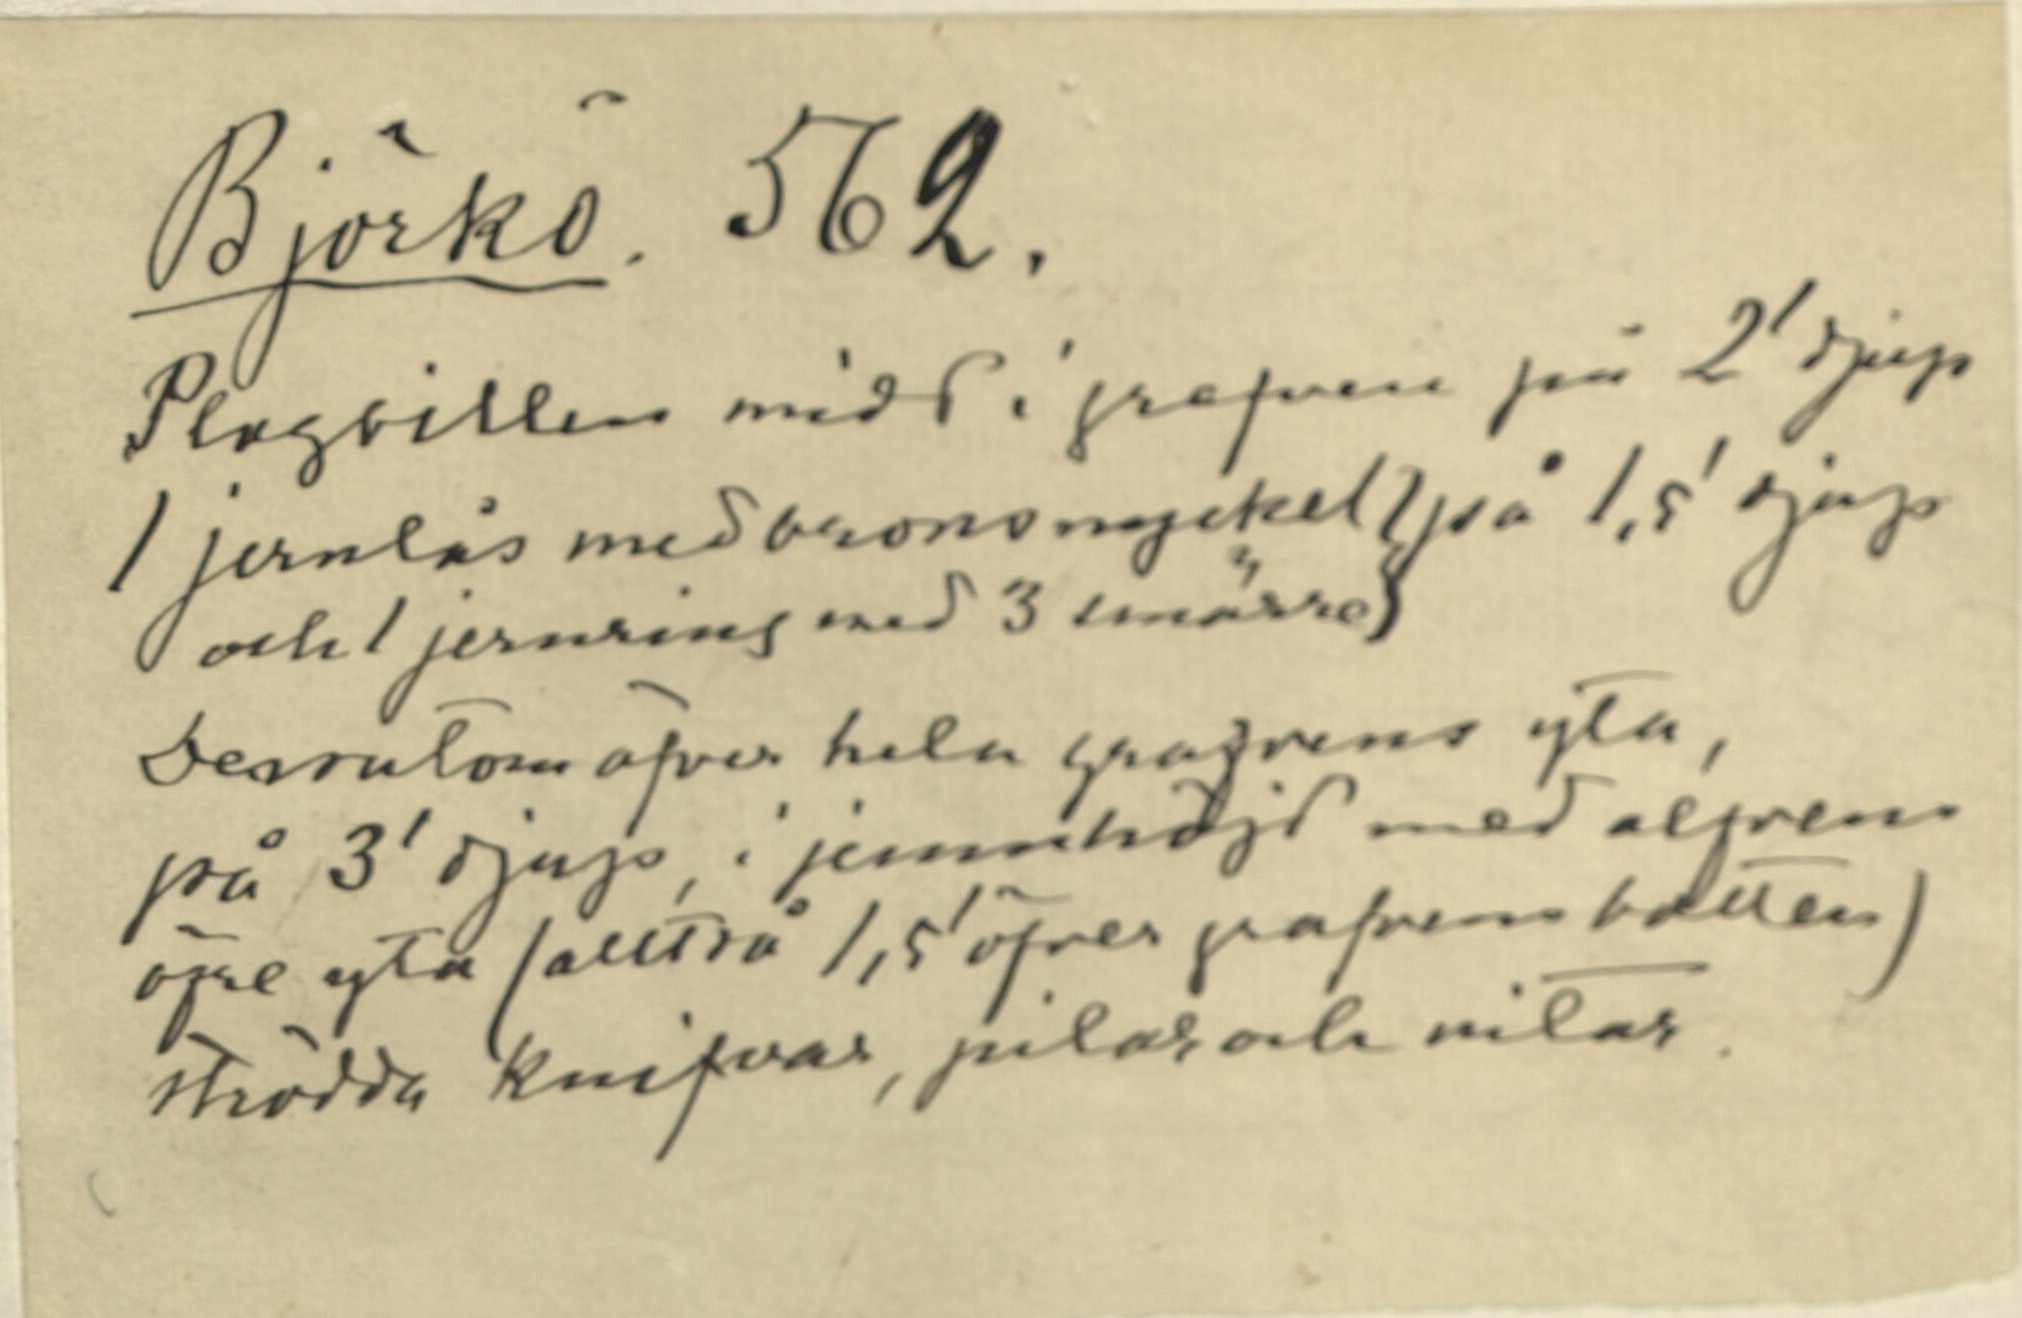 Björkö. 562.
Plogbillen midt i grafven på 2' djup
1 jernlås med bronsnyckel } på 1,5' djup
och 1 jernring med 3 smärre }
Dessutom öfver hela grafvens yta,
på 3' djup, i jemnhöjd med alfvens
öfre yta (alltså 1,5' öfver grafvens botten)
strödda knifvar, pilar och nitar.